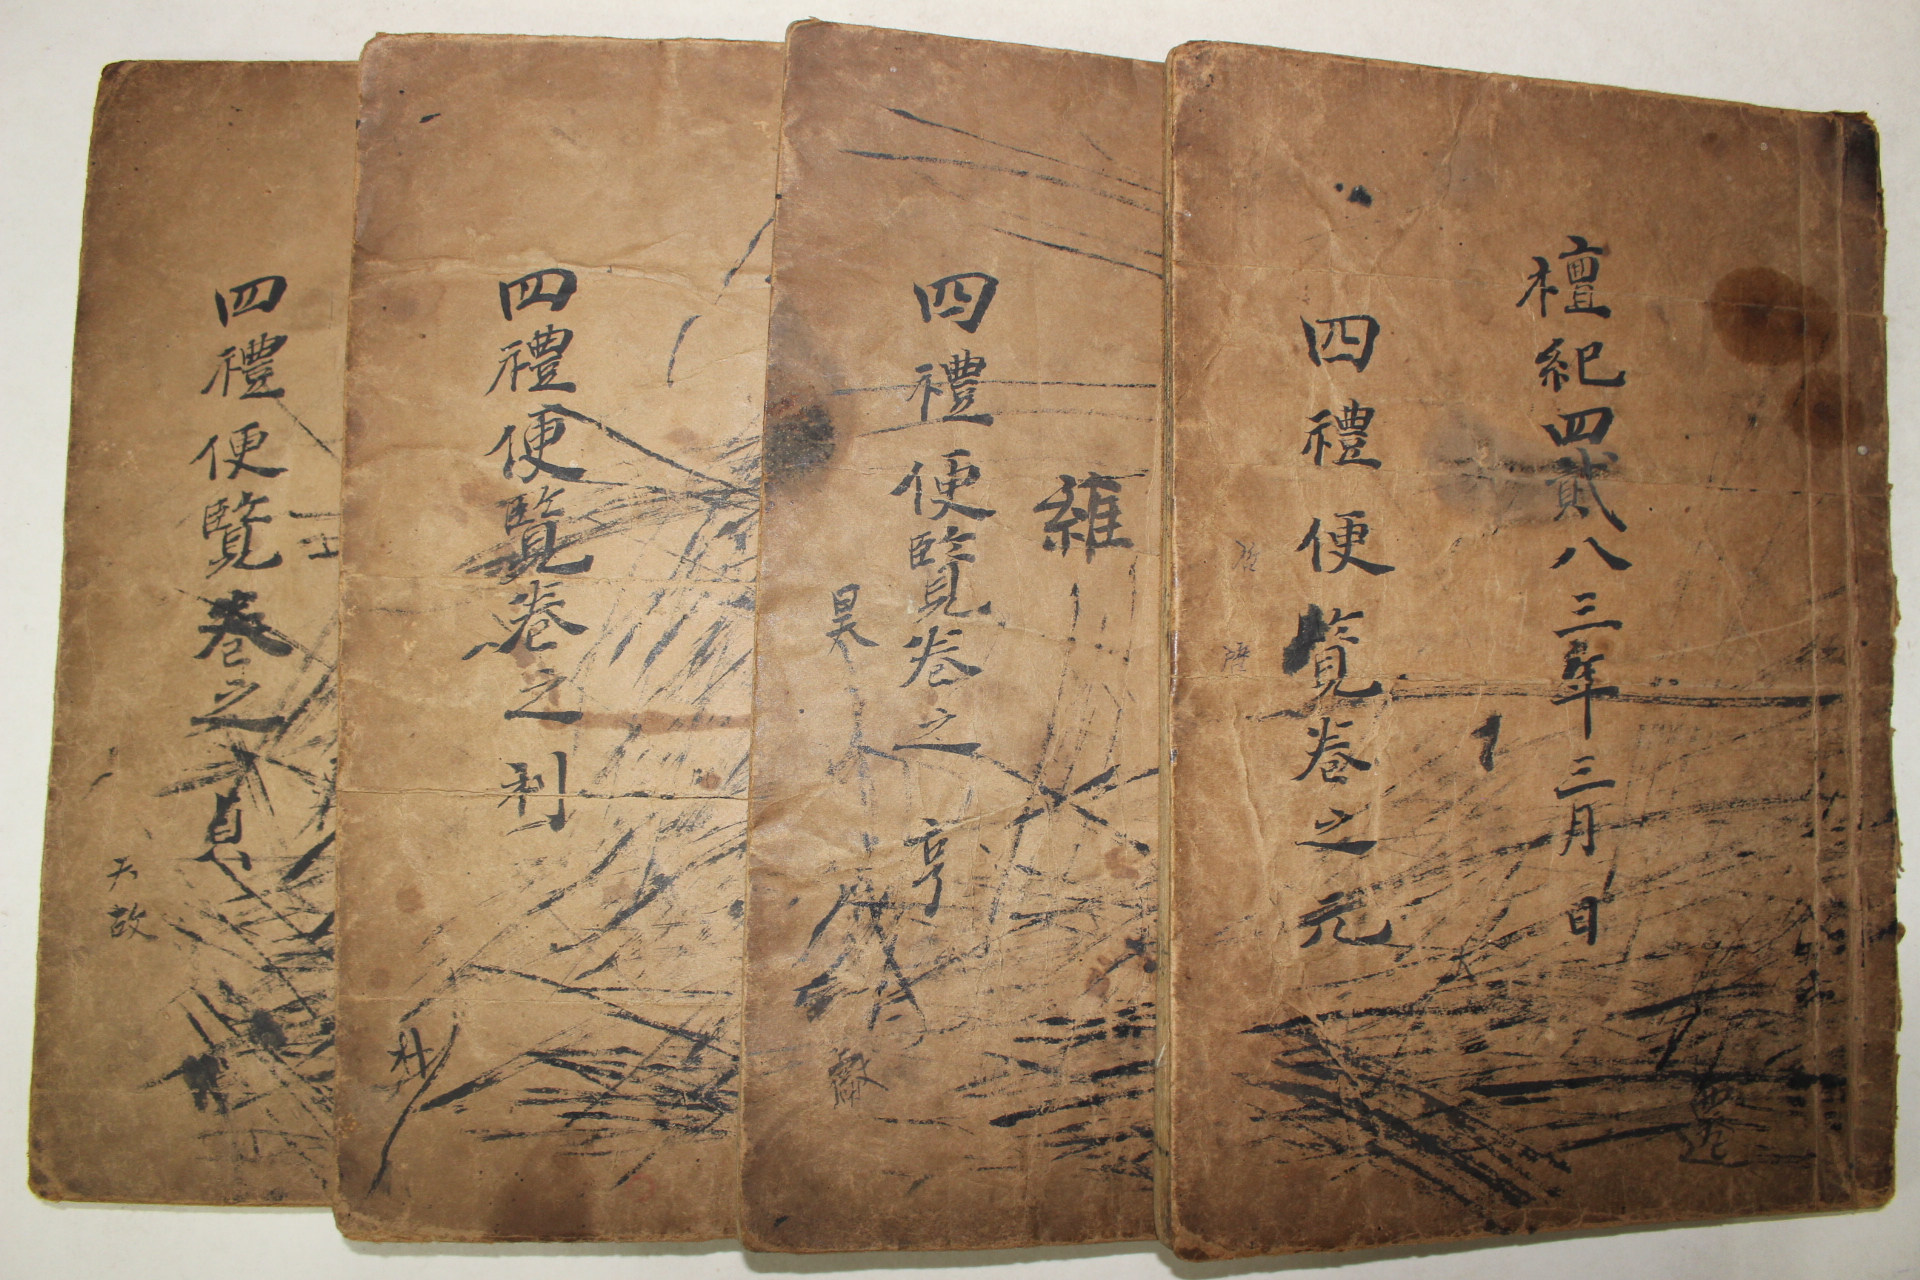 檀紀四貳八三年三月 日
四禮便覽卷之元
雒
四禮便覽卷之亨
昊
四禮便覽卷之利
朴
四禮便覽卷之貞
故